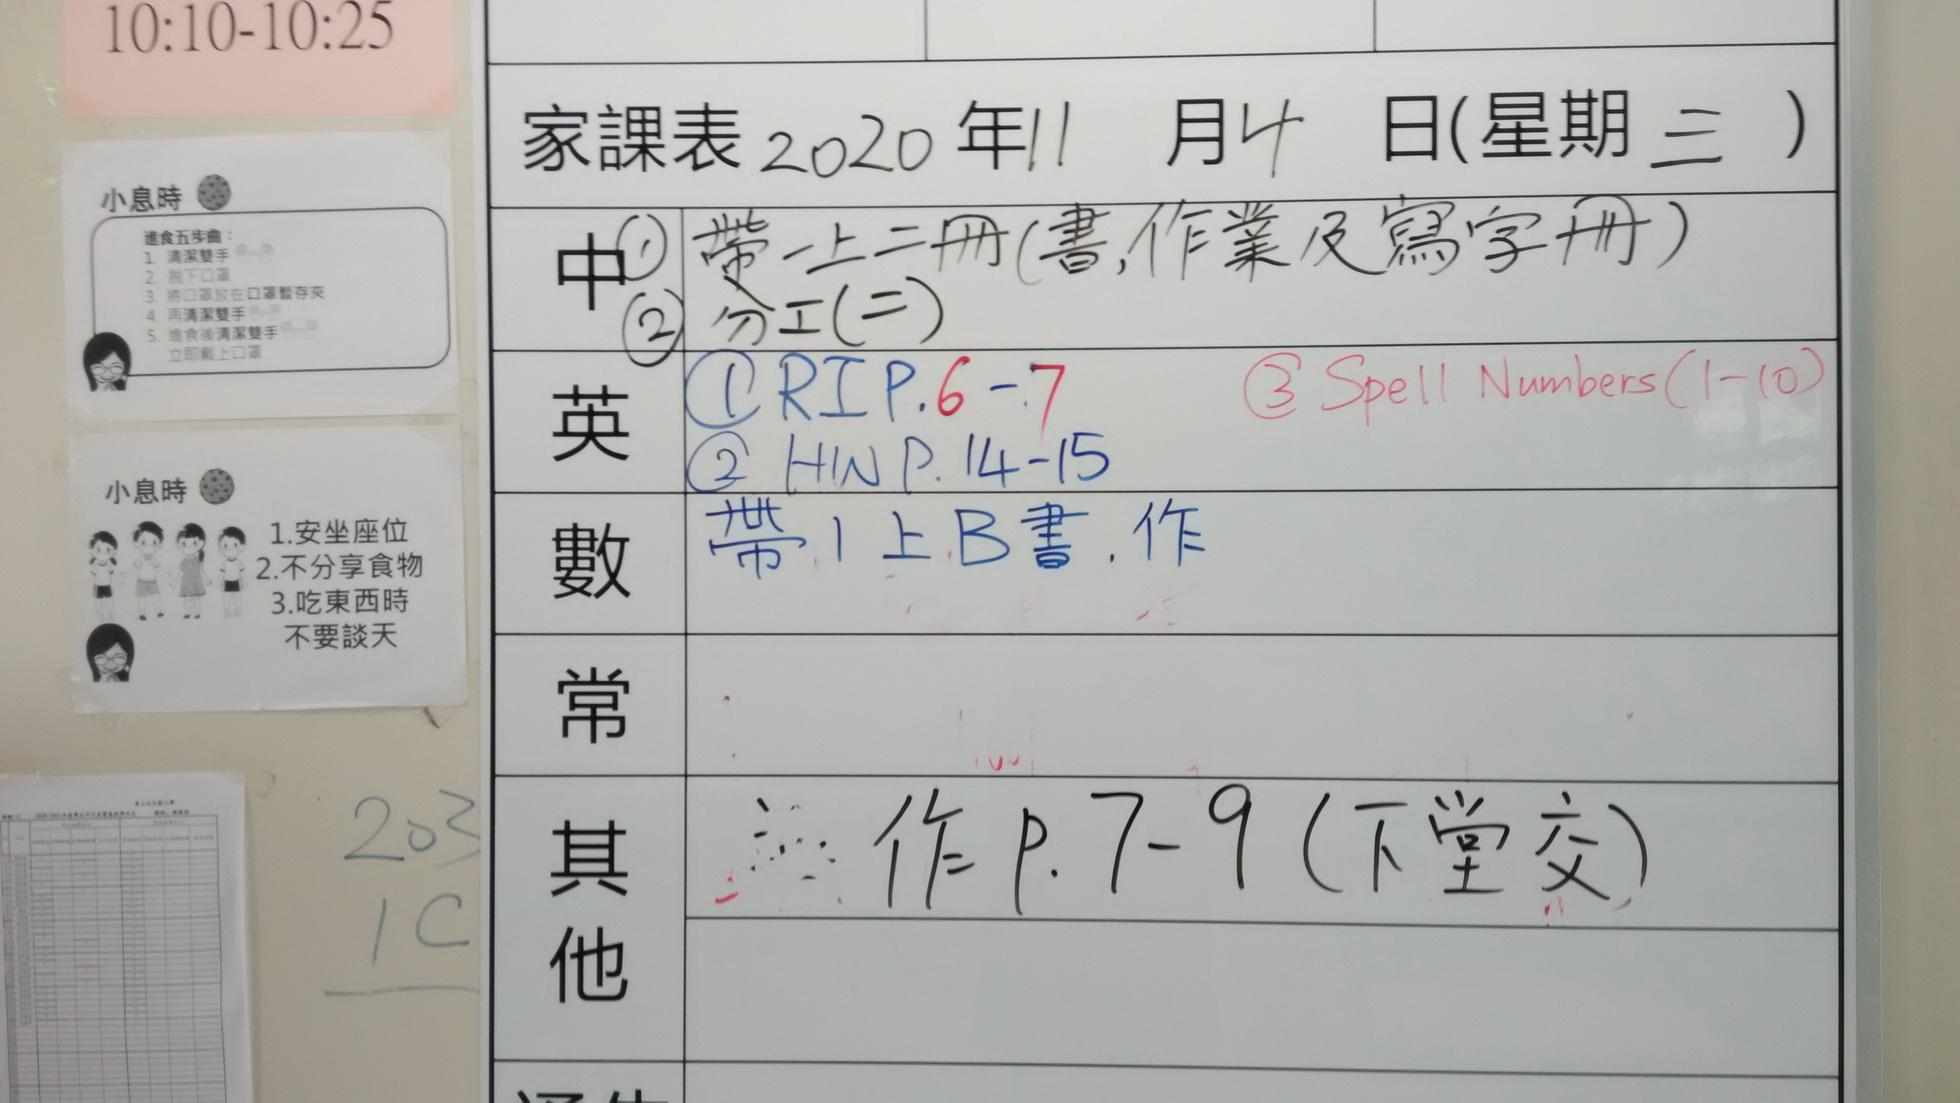 10:10-10:25
小息時
進食五步曲：
1. 清潔雙手
2. 脫下口罩
3. 將口罩放在口罩暫存夾
4. 再清潔雙手
5. 進食後清潔雙手
立即戴上口罩
小息時
1.安坐座位
2.不分享食物
3.吃東西時
不要談天
203
1C
家課表 2020 年 11 月 4 日(星期 三 )
中 ① 帶一上二冊(書,作業及寫字冊)
② 分工(二)
英 ① RI P.6-7 ③ Spell Numbers (1-10)
② HW P.14-15
數 帶 1 上 B 書 . 作
常
其他 作 P.7-9 (下堂交)